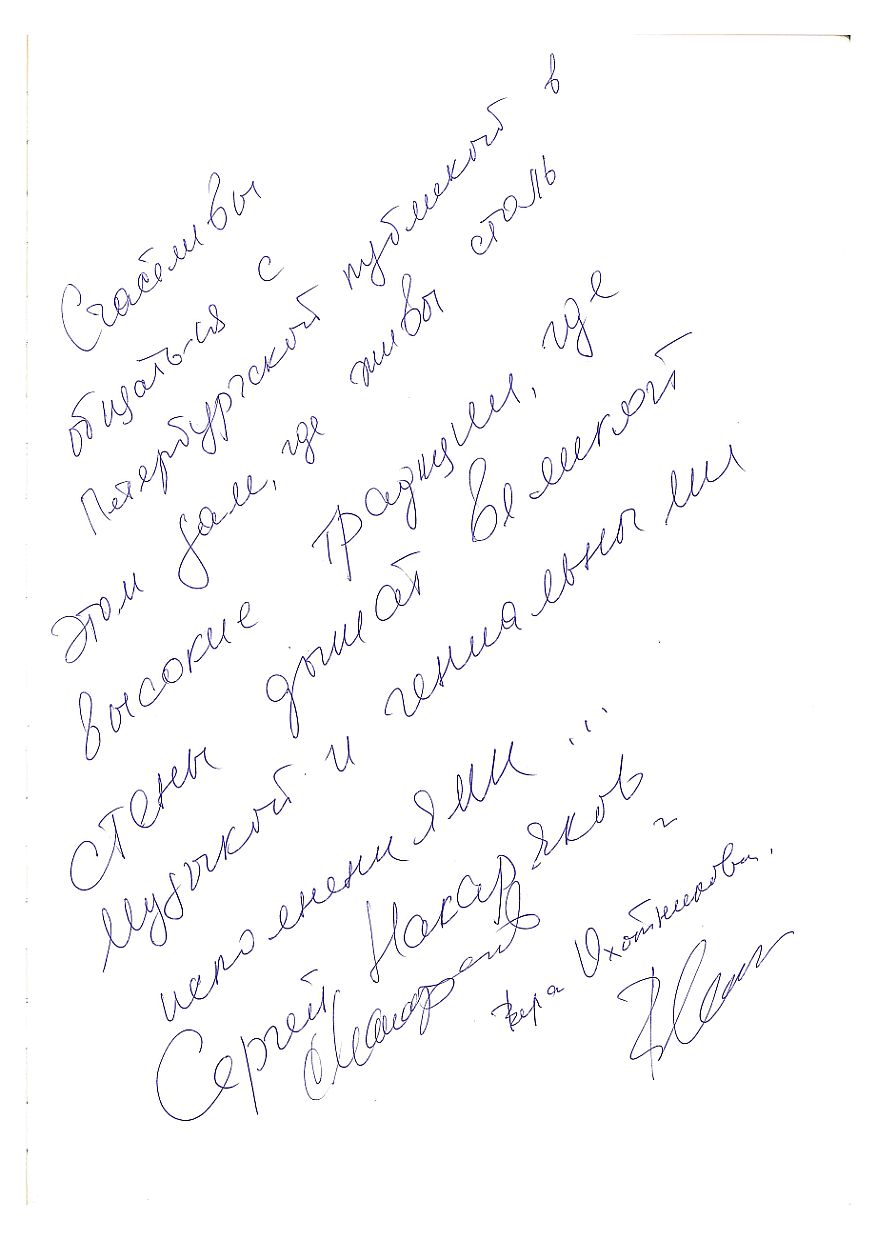 Счастливы
общаться с
Петербургской публикой в
этом зале, где живы столь
высокие традиции, где
стены дышат великой
музыкой и гениальными
исполнениями ...
Сергей Накаряков
и
Вера Охотникова.